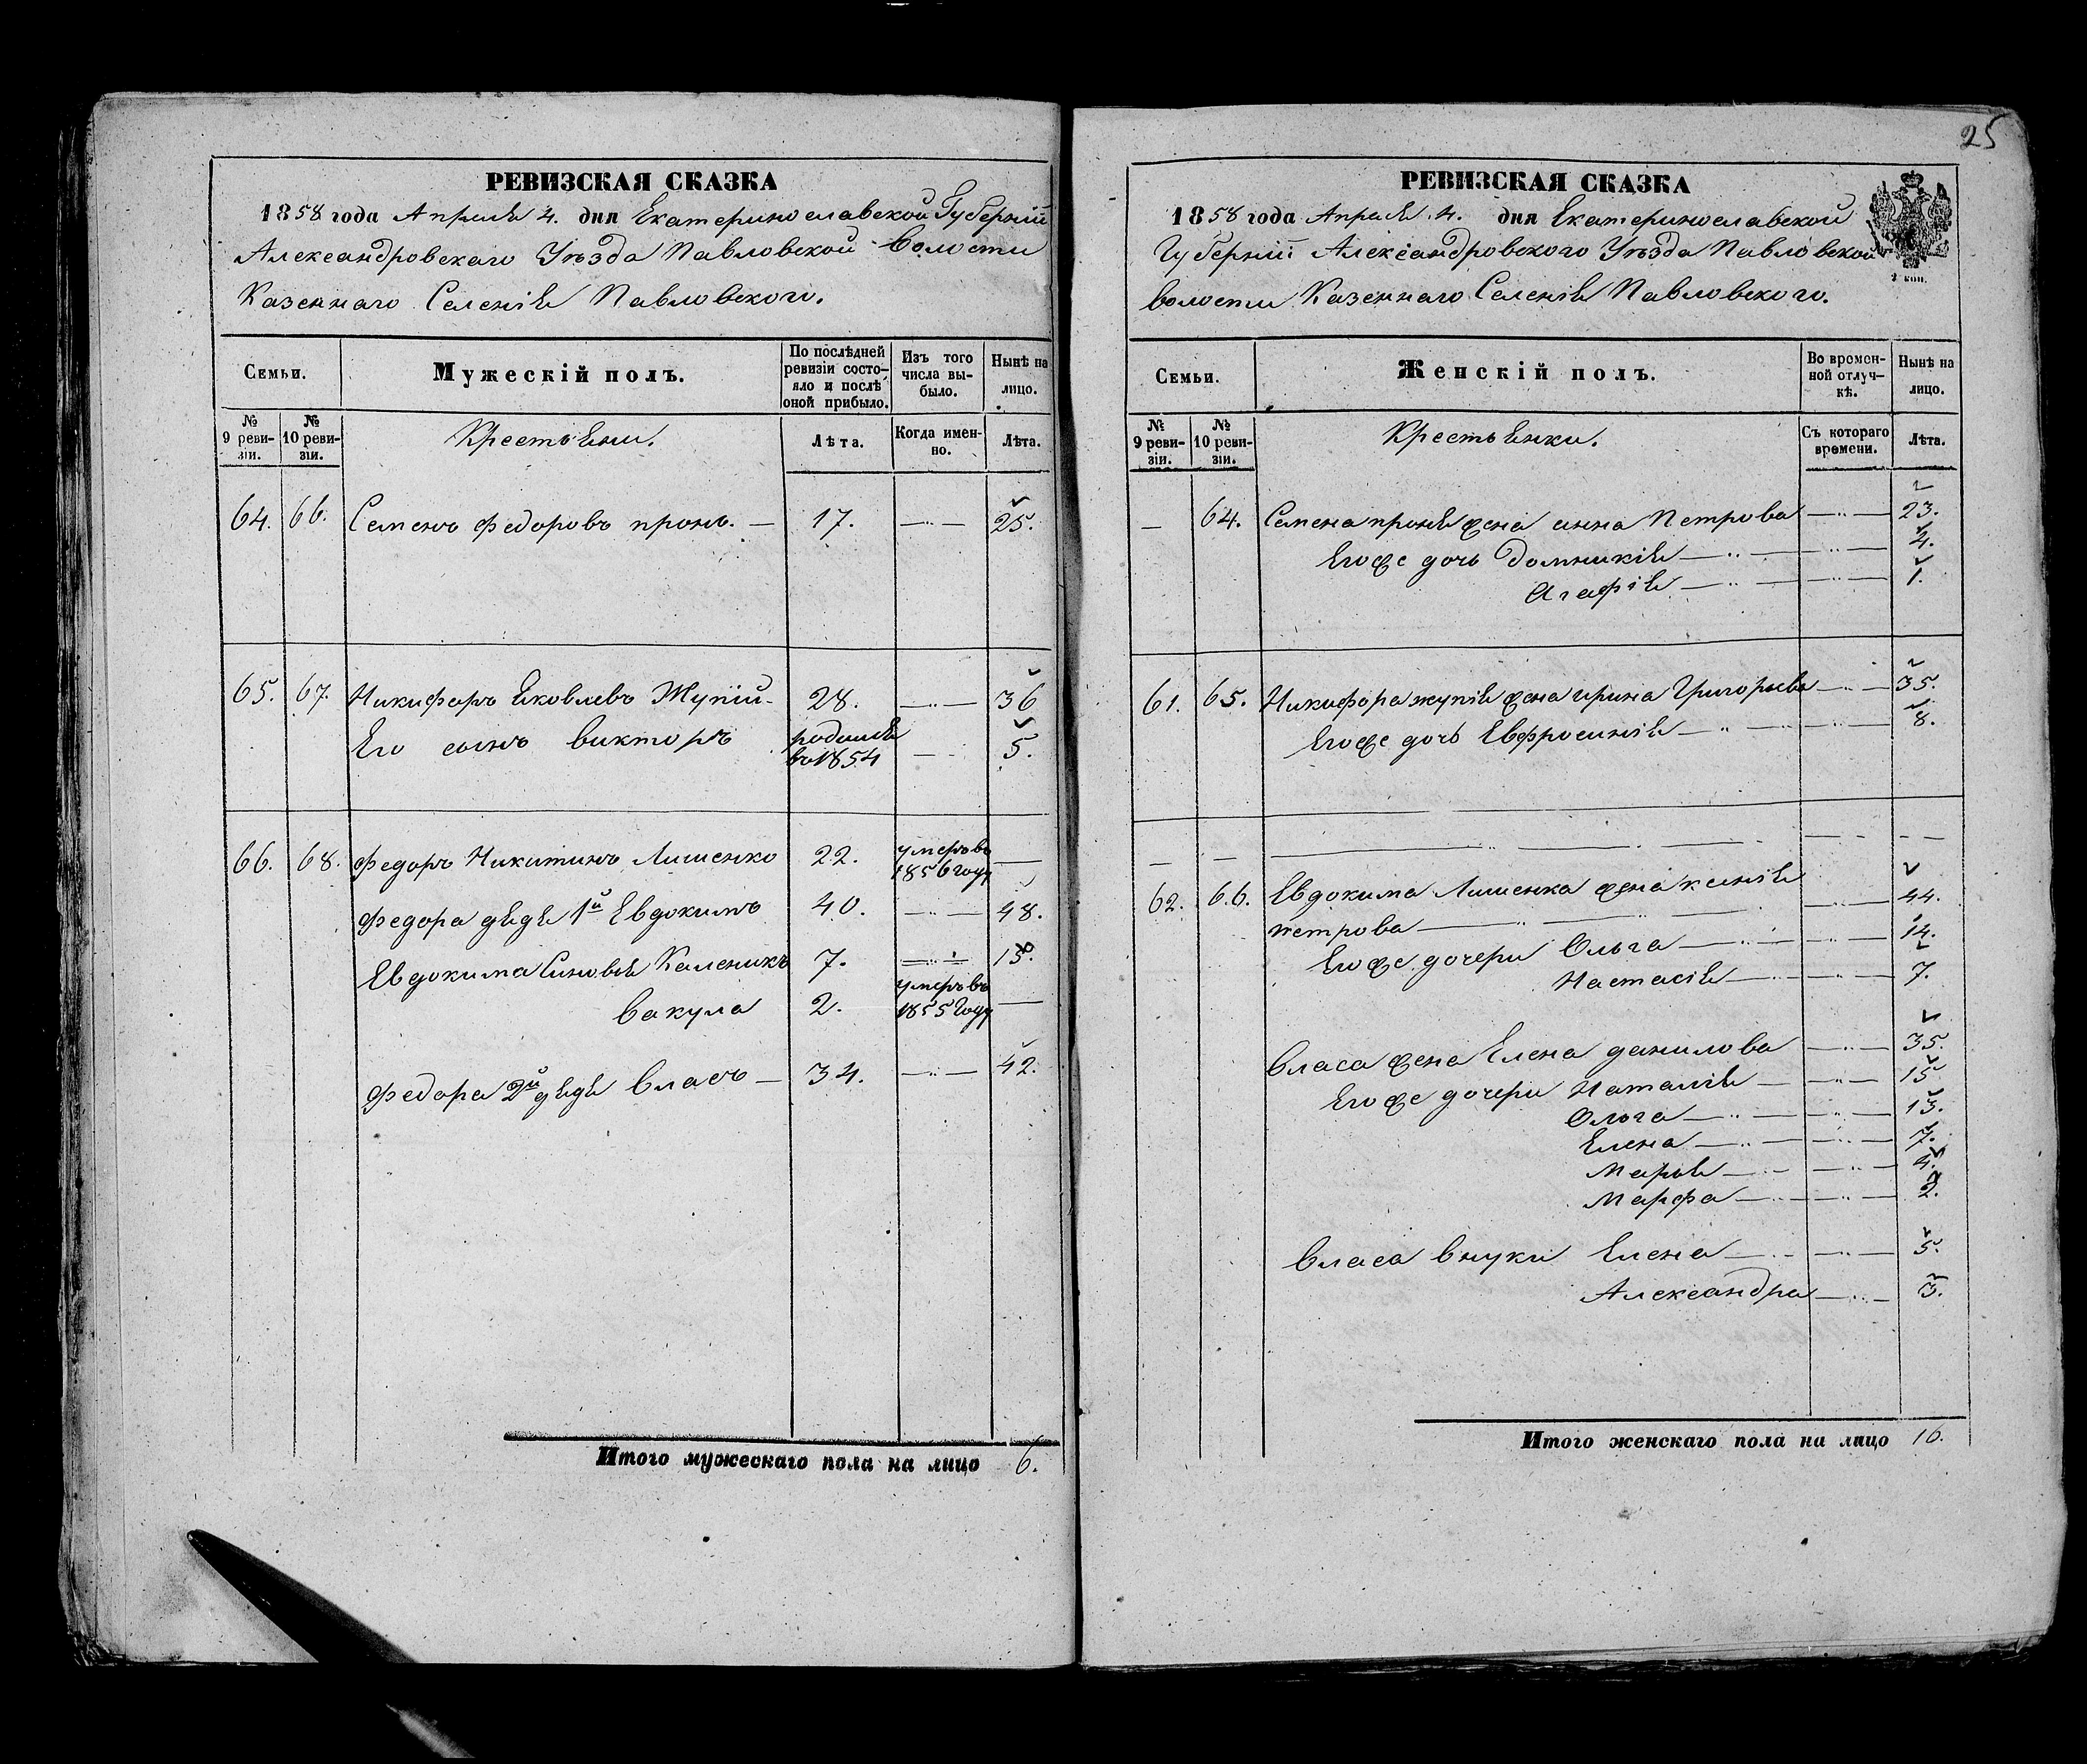 25
РЕВИЗСКАЯ СКАЗКА
1858 года Апреля 4. дня Екатеринославской Губерніи
Александровскаго Уѣзда Павловской Волости
Казеннаго Селенія Павловского.
Семьи.
Мужескій полъ.
По послѣдней ревизіи состо-яло и послѣ оной прибыло.
Изъ того числа вы-было.
Нынѣ на лицо.
№ 9 реви-зіи.
№ 10 реви-зіи.
Крестьяни.
Лѣта.
Когда имен-но.
Лѣта.
64. 66. Семенъ Федоровъ пронь. — 17. —"— 25.
65. 67. Никифоръ Яковлевъ Жупій 28. —"— 36
Его сынъ викторъ родился во 1854 — 5.
66. 68. Федоръ Никитинъ Лишенко 22. умеръ въ 1856 году —
Федора дядя 1й Евдокимъ 40. —"— 48.
Евдокима Синовья Каленикъ 7. —"— 15.
Вакула 2. умеръ въ 1855 году —
Федора 2й дядя Власъ — 34. —"— 42.
Итого мужескаго пола на лицо 6.
РЕВИЗСКАЯ СКАЗКА
1858 года Апреля 4. дня Екатеринославской
Губерніи Александровского Уѣзда Павловской
волости Казеннаго Селенія Павловского.
2 коп.
Семьи.
Женскій полъ.
Во времен-ной отлуч-кѣ.
Нынѣ на лицо.
№ 9 реви-зіи.
№ 10 реви-зіи.
Крестьянки.
Съ котораго времени.
Лѣта.
— 64. Семена проня жена анна Петрова —"— 23.
Егоже дочь Домникія —"— 4.
Агафія —"— 1.
61. 65. Никифора жупія жена ирина Григорьева —"— 35.
Егоже дочь Евфросинія —"— 8.
62. 66. Евдокима Лишенка жена ксинія
петрова —"— 44.
Егоже дочери Ольга —"— 14.
Настасія —"— 7.
Власа жена Елена данилова —"— 35.
Егоже дочери Наталія —"— 15
Ольга —"— 13.
Елена —"— 7.
Марья —"— 4.
Марфа —"— 2.
Власа внуки Елена —"— 5.
Александра —"— 3.
Итого женскаго пола на лицо 16.